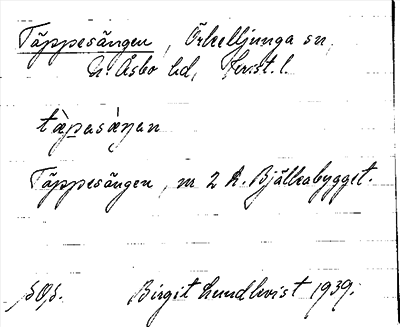 Täppesängen, Örkelljunga sn,
N. Åsbo hd, Krist. l.
tàpasàŋan
Täppesängen, nr 2 h. Bjälkabygget.
S.O.S. Birgit Lundkvist 1939.